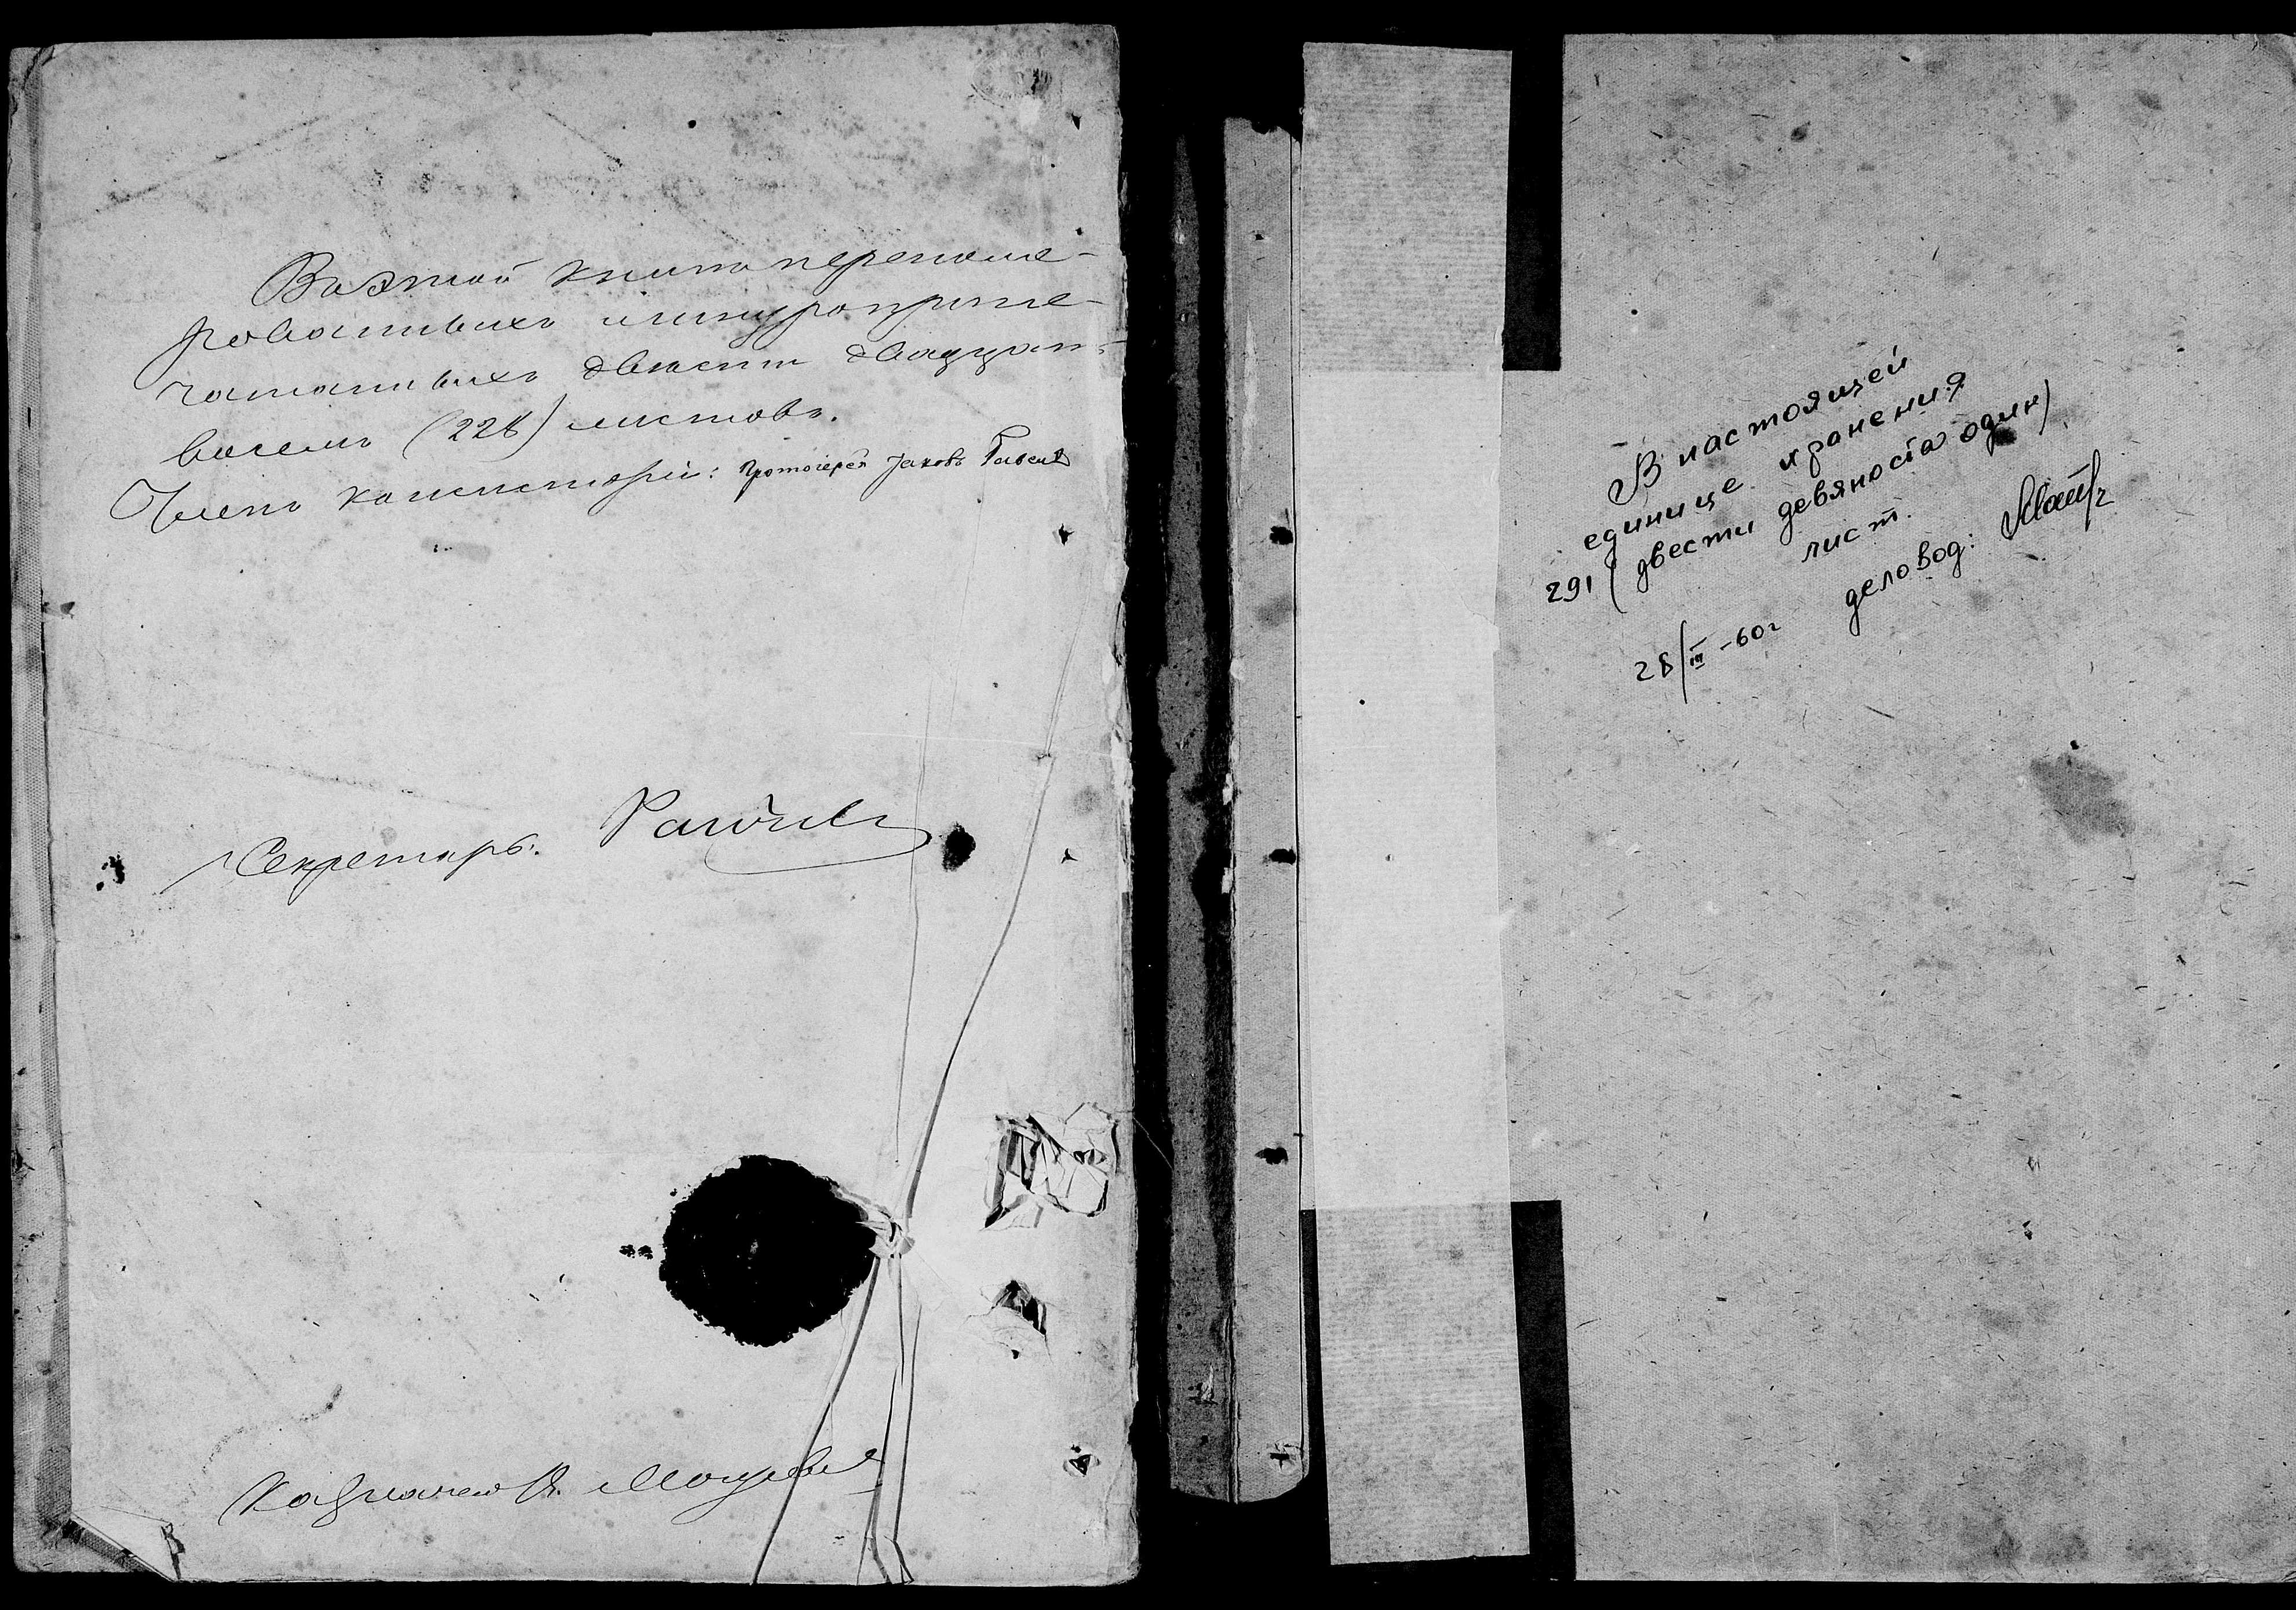 Въ этой книги перенуме-
рованныхъ и шнуроприпе-
чатанныхъ двѣсти двадцать
восемь (228) листовъ.
Членъ консисторіи: Протоіерей Іаковъ
Секретарь:
Казначей
В настоящей
единице хранения
291 (двести девяноста один)
лист.
28/III-60г деловод: